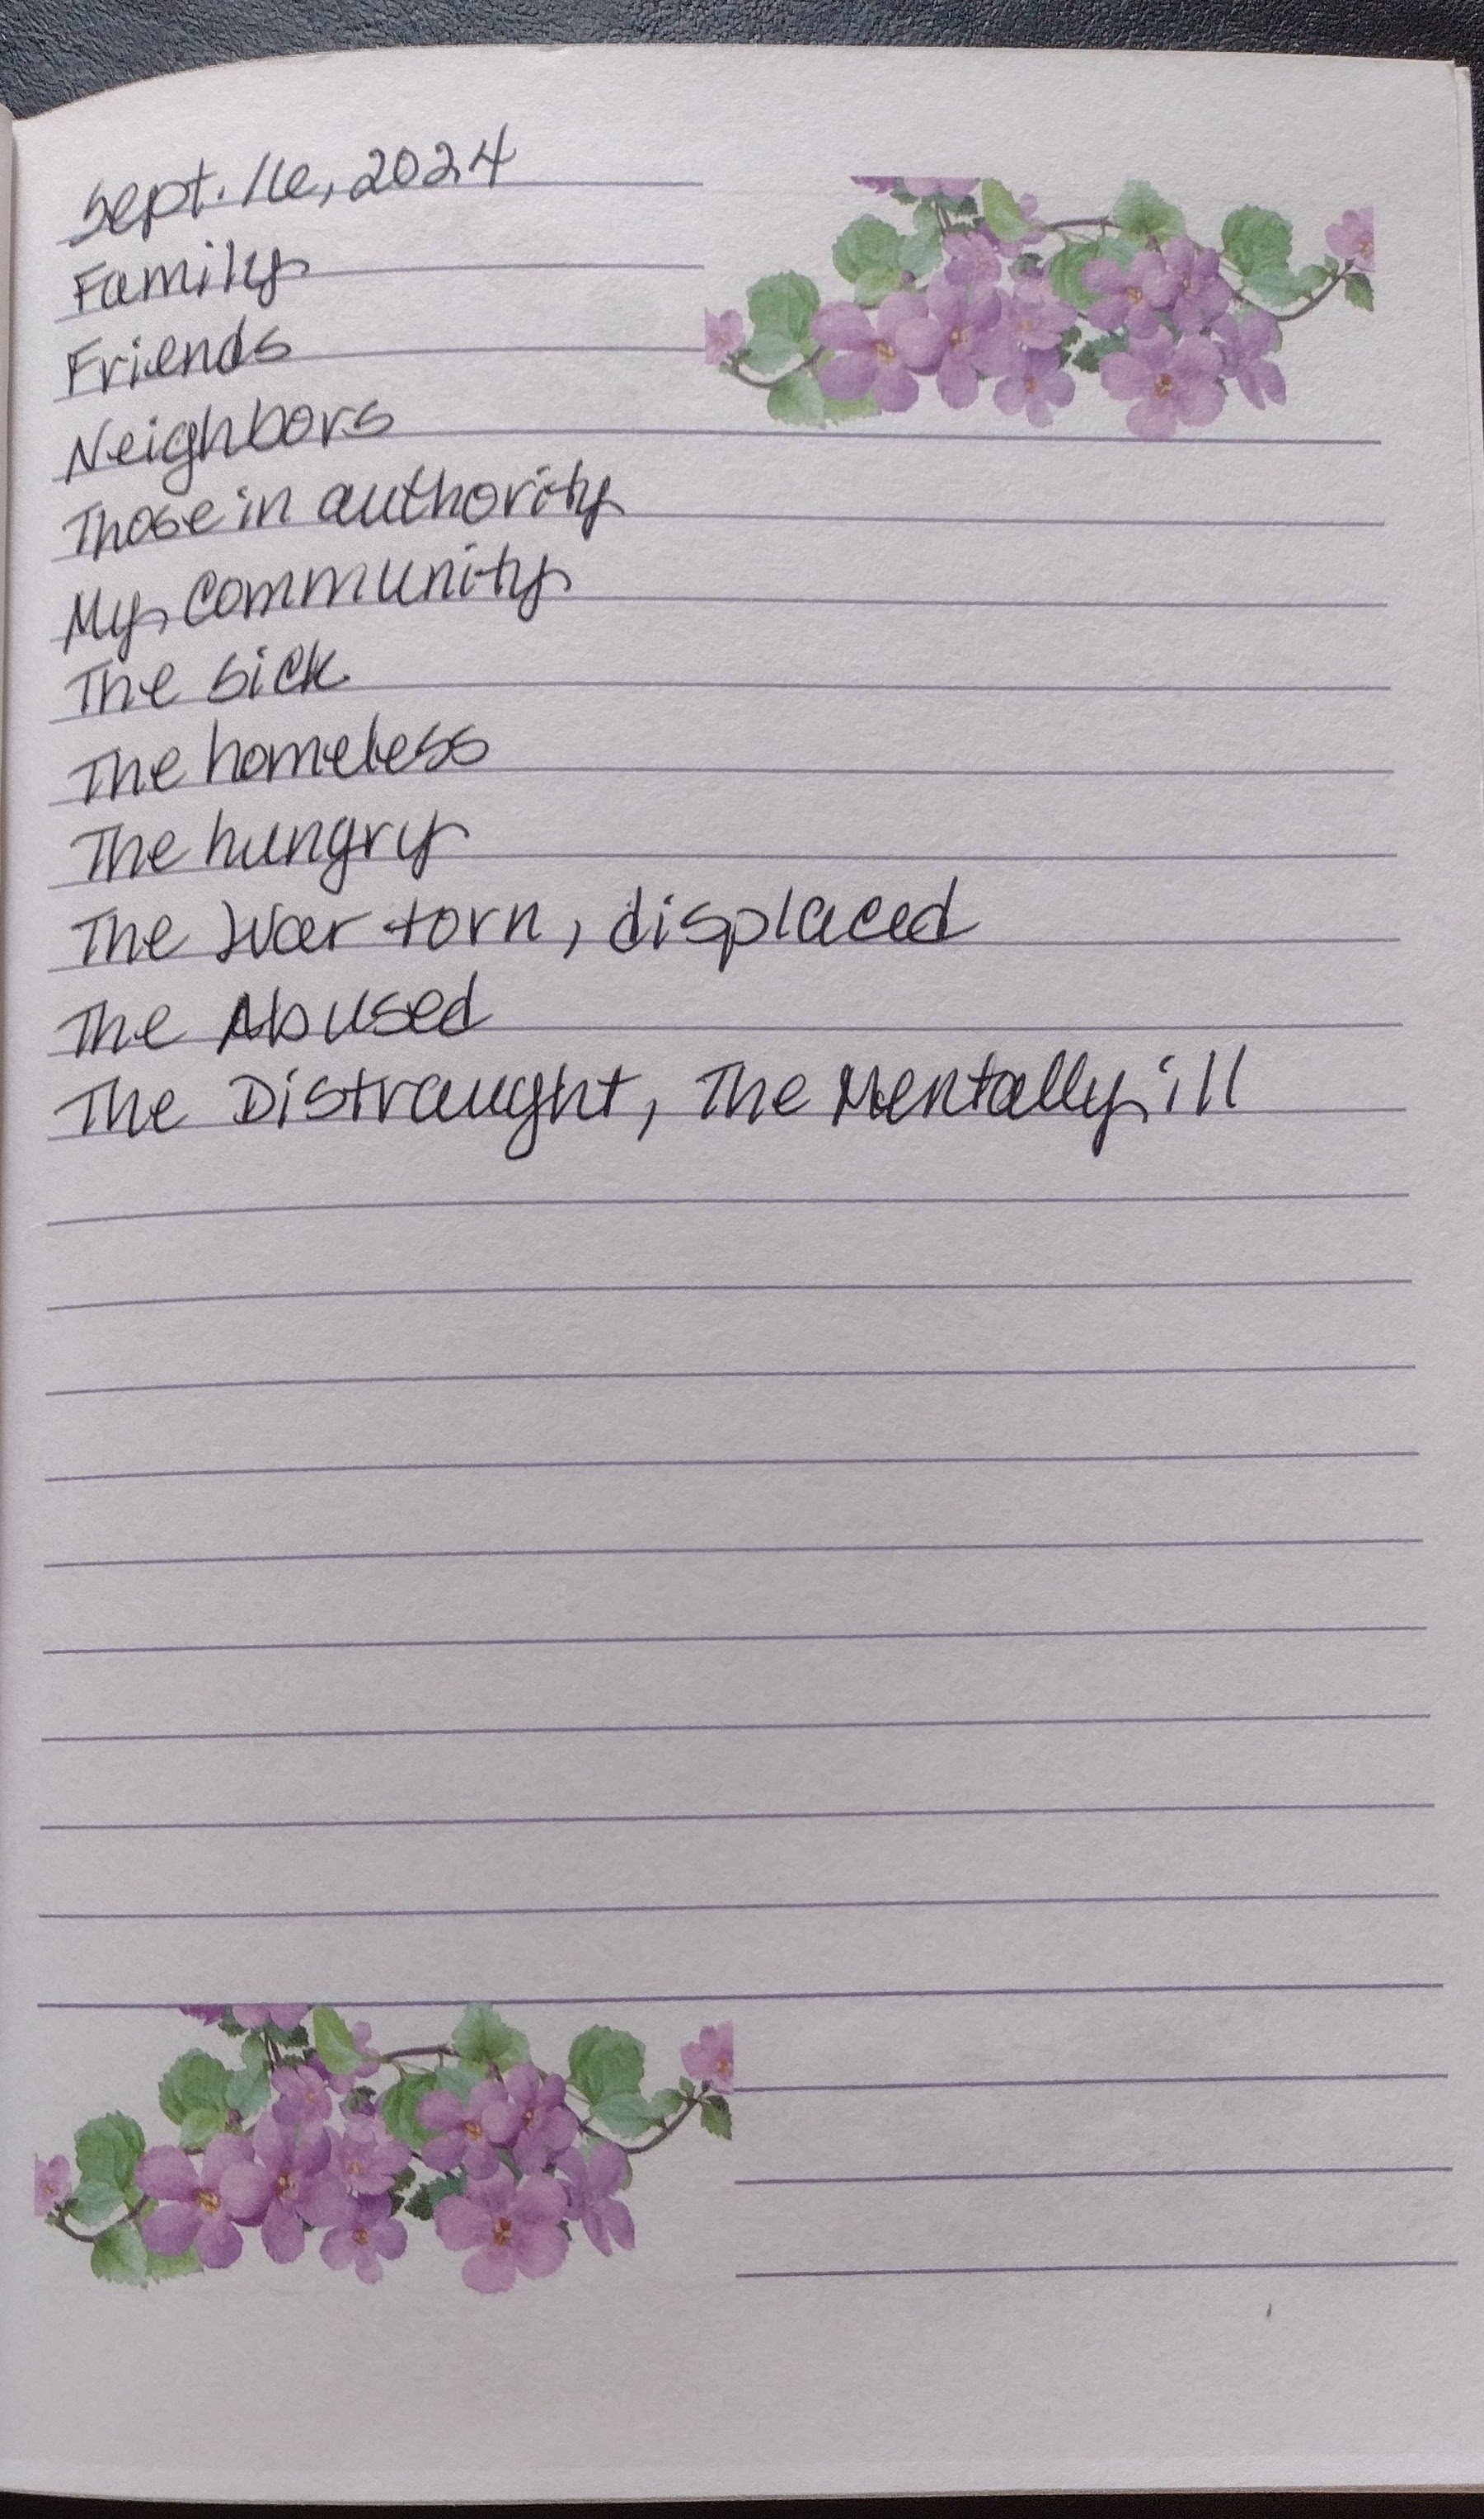 Sept. 16, 2024
Family
Friends
Neighbors
Those in authority
My community
The sick
The homeless
The hungry
The War torn, displaced
The Abused
The Distraught, The Mentally ill